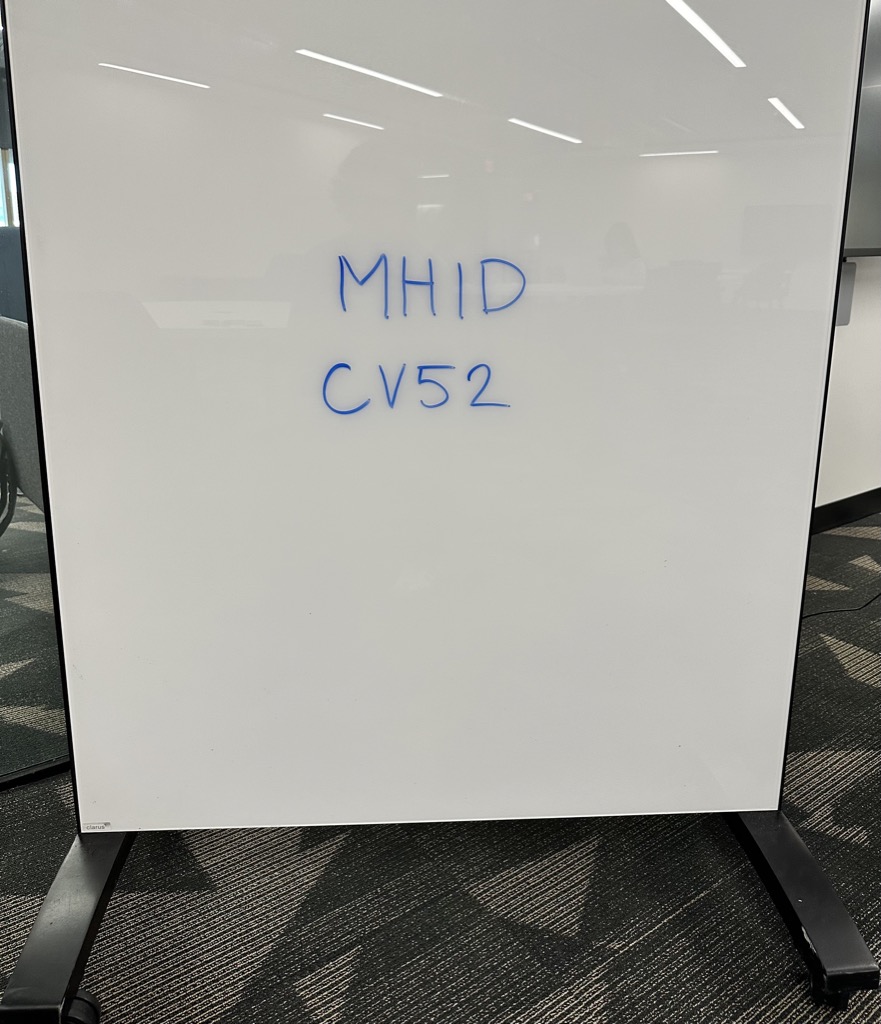 MHID
CV52
clarus